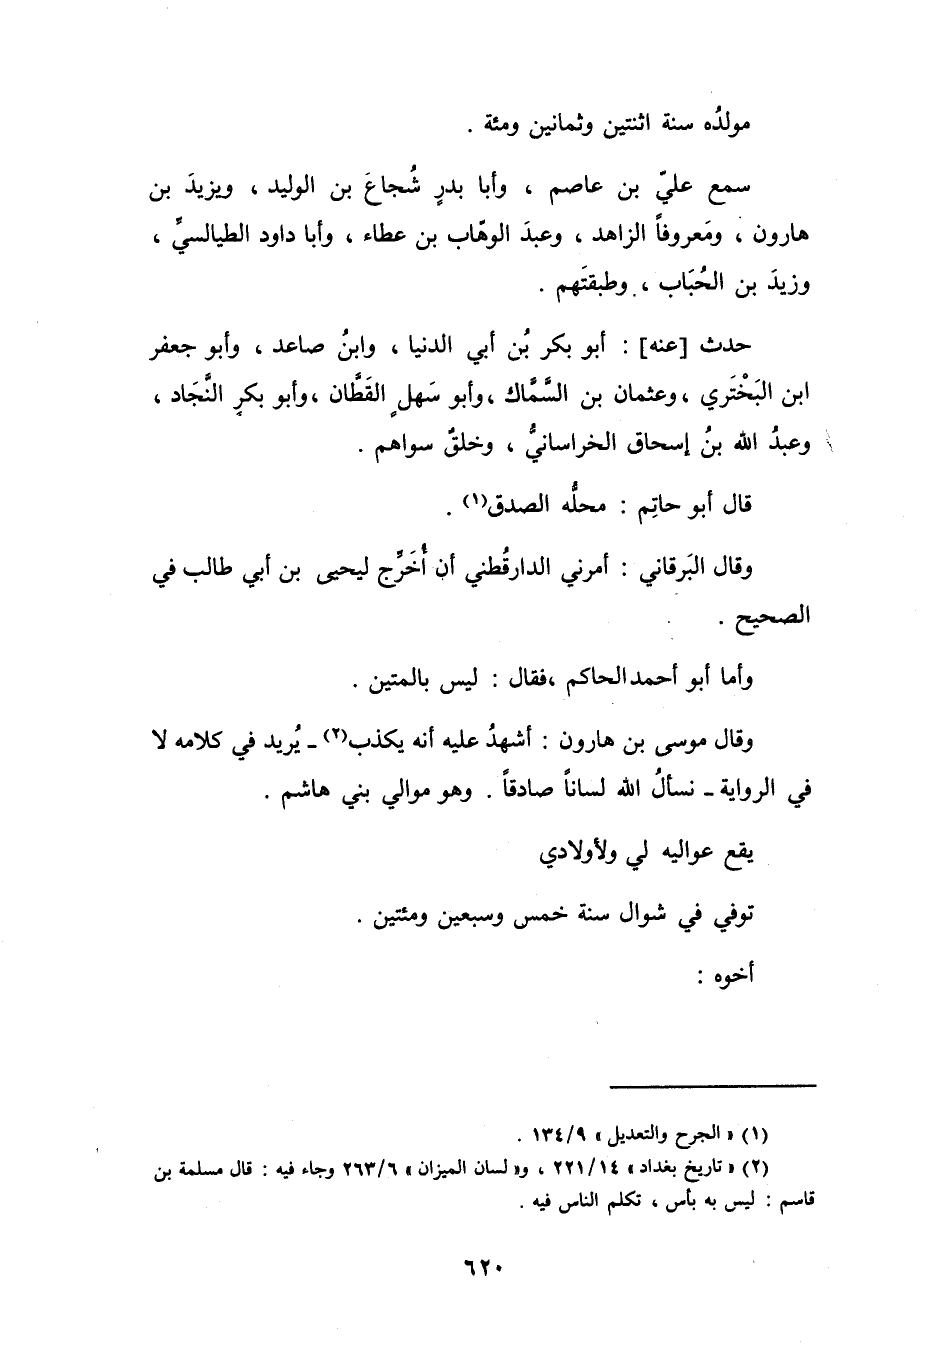 مولدُه سنة اثنتين وثمانين ومئة .
سمع عليّ بن عاصم ، وأبا بدرٍ شُجاعَ بن الوليد ، ويزيدَ بن
هارون ، ومَعروفاً الزاهد ، وعبدَ الوهّاب بن عطاء ، وأبا داود الطيالسيِّ ،
وزيدَ بن الحُبَاب ، وطبقتَهم .
حدث [عنه] : أبو بكر بُن أبي الدنيا ، وابنُ صاعد ، وأبو جعفر
ابن البَخْتَري ، وعثمان بن السَّمَّاك ، وأبو سَهلٍ القَطَّان ، وأبو بكرٍ النَّجَاد ،
وعبدُ الله بنُ إسحاق الخراسانيُّ ، وخلقٌ سواهم .
قال أبو حاتِم : محلُّه الصدق(١) .
وقال البَرقاني : أمرني الدارقُطني أن أُخَرِّج ليحيى بن أبي طالب في
الصحيح .
وأما أبو أحمد الحاكم ، فقال : ليس بالمتين .
وقال موسى بن هارون : أشهدُ عليه أنه يكذب(٢) ـ يُريد في كلامه لا
في الرواية ـ نسألُ الله لساناً صادقاً . وهو موالي بني هاشم .
يقع عواليه لي ولأولادي
توفي في شوال سنة خمس وسبعين ومئتين .
أخوه :
(١) « الجرح والتعديل » ١٣٤/٩ .
(٢) « تاريخ بغداد » ٢٢١/١٤ ، و« لسان الميزان » ٢٦٣/٦ وجاء فيه : قال مسلمة بن
قاسم : ليس به بأس ، تكلم الناس فيه .
٦٢٠